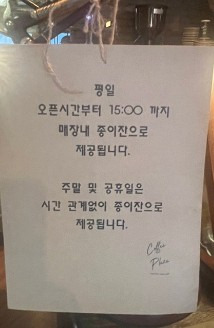 평일
오픈시간부터 15:00 까지
매장내 종이잔으로
제공됩니다.
주말 및 공휴일은
시간 관계없이 종이잔으로
제공됩니다.
Coffee
Place